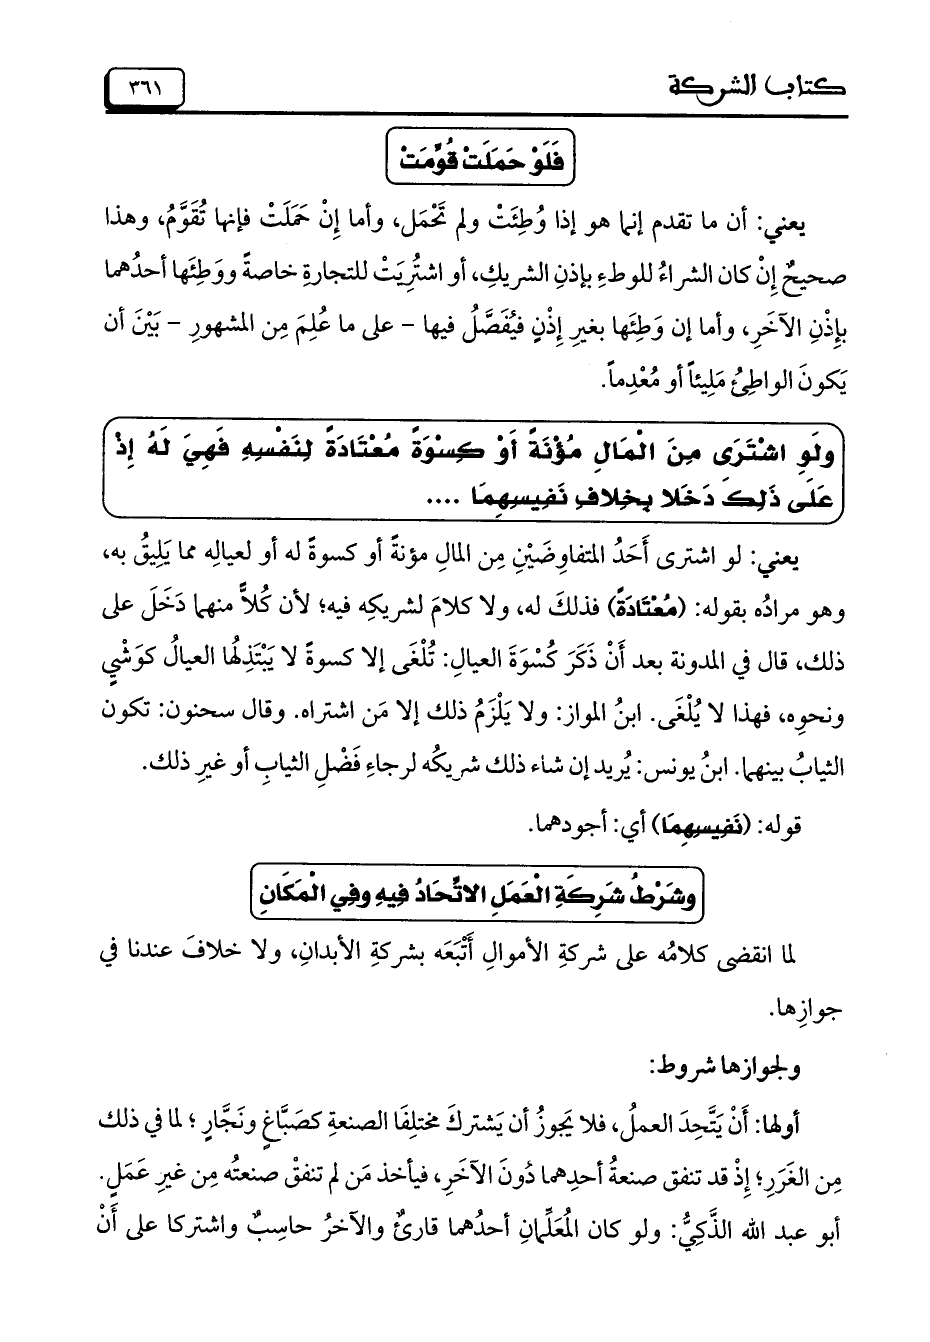 كتاب الشركة ٣٦١
فَلَوْ حَمَلَتْ قُوِّمَتْ
يعني: أن ما تقدم إنما هو إذا وُطِئَتْ ولم تَحْمَل، وأما إِنْ حَمَلَتْ فإنها تُقَوَّمُ، وهذا
صحيحٌ إِنْ كان الشراءُ للوطءِ بإذنِ الشريكِ، أو اشتُرِيَتْ للتجارةِ خاصةً ووَطِئَها أحدُهما
بإِذْنِ الآخَرِ، وأما إن وَطِئَها بغيرِ إِذْنٍ فيُفَصَّلُ فيها – على ما عُلِمَ مِن المشهورِ – بَيْنَ أن
يَكونَ الواطِئُ مَلِيئاً أو مُعْدِماً.
ولَوِ اشْتَرَى مِنَ الْمَالِ مُؤْنَةً أَوْ كِسْوَةً مُعْتَادَةً لِنَفْسِهِ فَهِيَ لَهُ إِذْ
عَلَى ذَلِكَ دَخَلا بِخِلافِ نَفِيسِهِمَا ....
يعني: لو اشترى أَحَدُ المتفاوِضَيْنِ مِن المالِ مؤنةً أو كسوةً له أو لعيالِه مما يَلِيقُ به،
وهو مرادُه بقوله: (مُعْتَادَةً) فذلكَ له، ولا كلامَ لشريكِه فيه؛ لأن كُلاًّ منهما دَخَلَ على
ذلك، قال في المدونة بعد أَنْ ذَكَرَ كُسْوَةَ العيالِ: تُلْغَى إلا كسوةً لا يَبْتَذِلُها العيالُ كوَشْيٍ
ونحوِه، فهذا لا يُلْغَى. ابنُ المواز: ولا يَلْزَمُ ذلك إلا مَن اشتراه. وقال سحنون: تكون
الثيابُ بينهما. ابنُ يونس: يُريد إن شاء ذلك شريكُه لرجاءِ فَضْلِ الثيابِ أو غيرِ ذلك.
قوله: (نَفِيسِهِمَا) أي: أجودهما.
وشَرْطُ شَرِكَةِ الْعَمَلِ الاتِّحَادُ فِيهِ وفِي الْمَكَانِ
لما انقضى كلامُه على شركةِ الأموالِ أَتْبَعَه بشركةِ الأبدانِ، ولا خلافَ عندنا في
جوازِها.
ولجوازها شروط:
أولها: أَنْ يَتَّحِدَ العملُ، فلا يَجوزُ أن يَشتركَ مختلِفَا الصنعةِ كصَبَّاغٍ ونَجَّارٍ؛ لما في ذلك
مِن الغَرَرِ؛ إِذْ قد تنفق صنعةُ أحدِهما دُونَ الآخَرِ، فيأخذ مَن لم تنفقْ صنعتُه مِن غيرِ عَمَلٍ.
أبو عبد الله الذَّكِيُّ: ولو كان المُعَلِّمانِ أحدُهما قارئٌ والآخرُ حاسِبٌ واشتركا على أَنْ